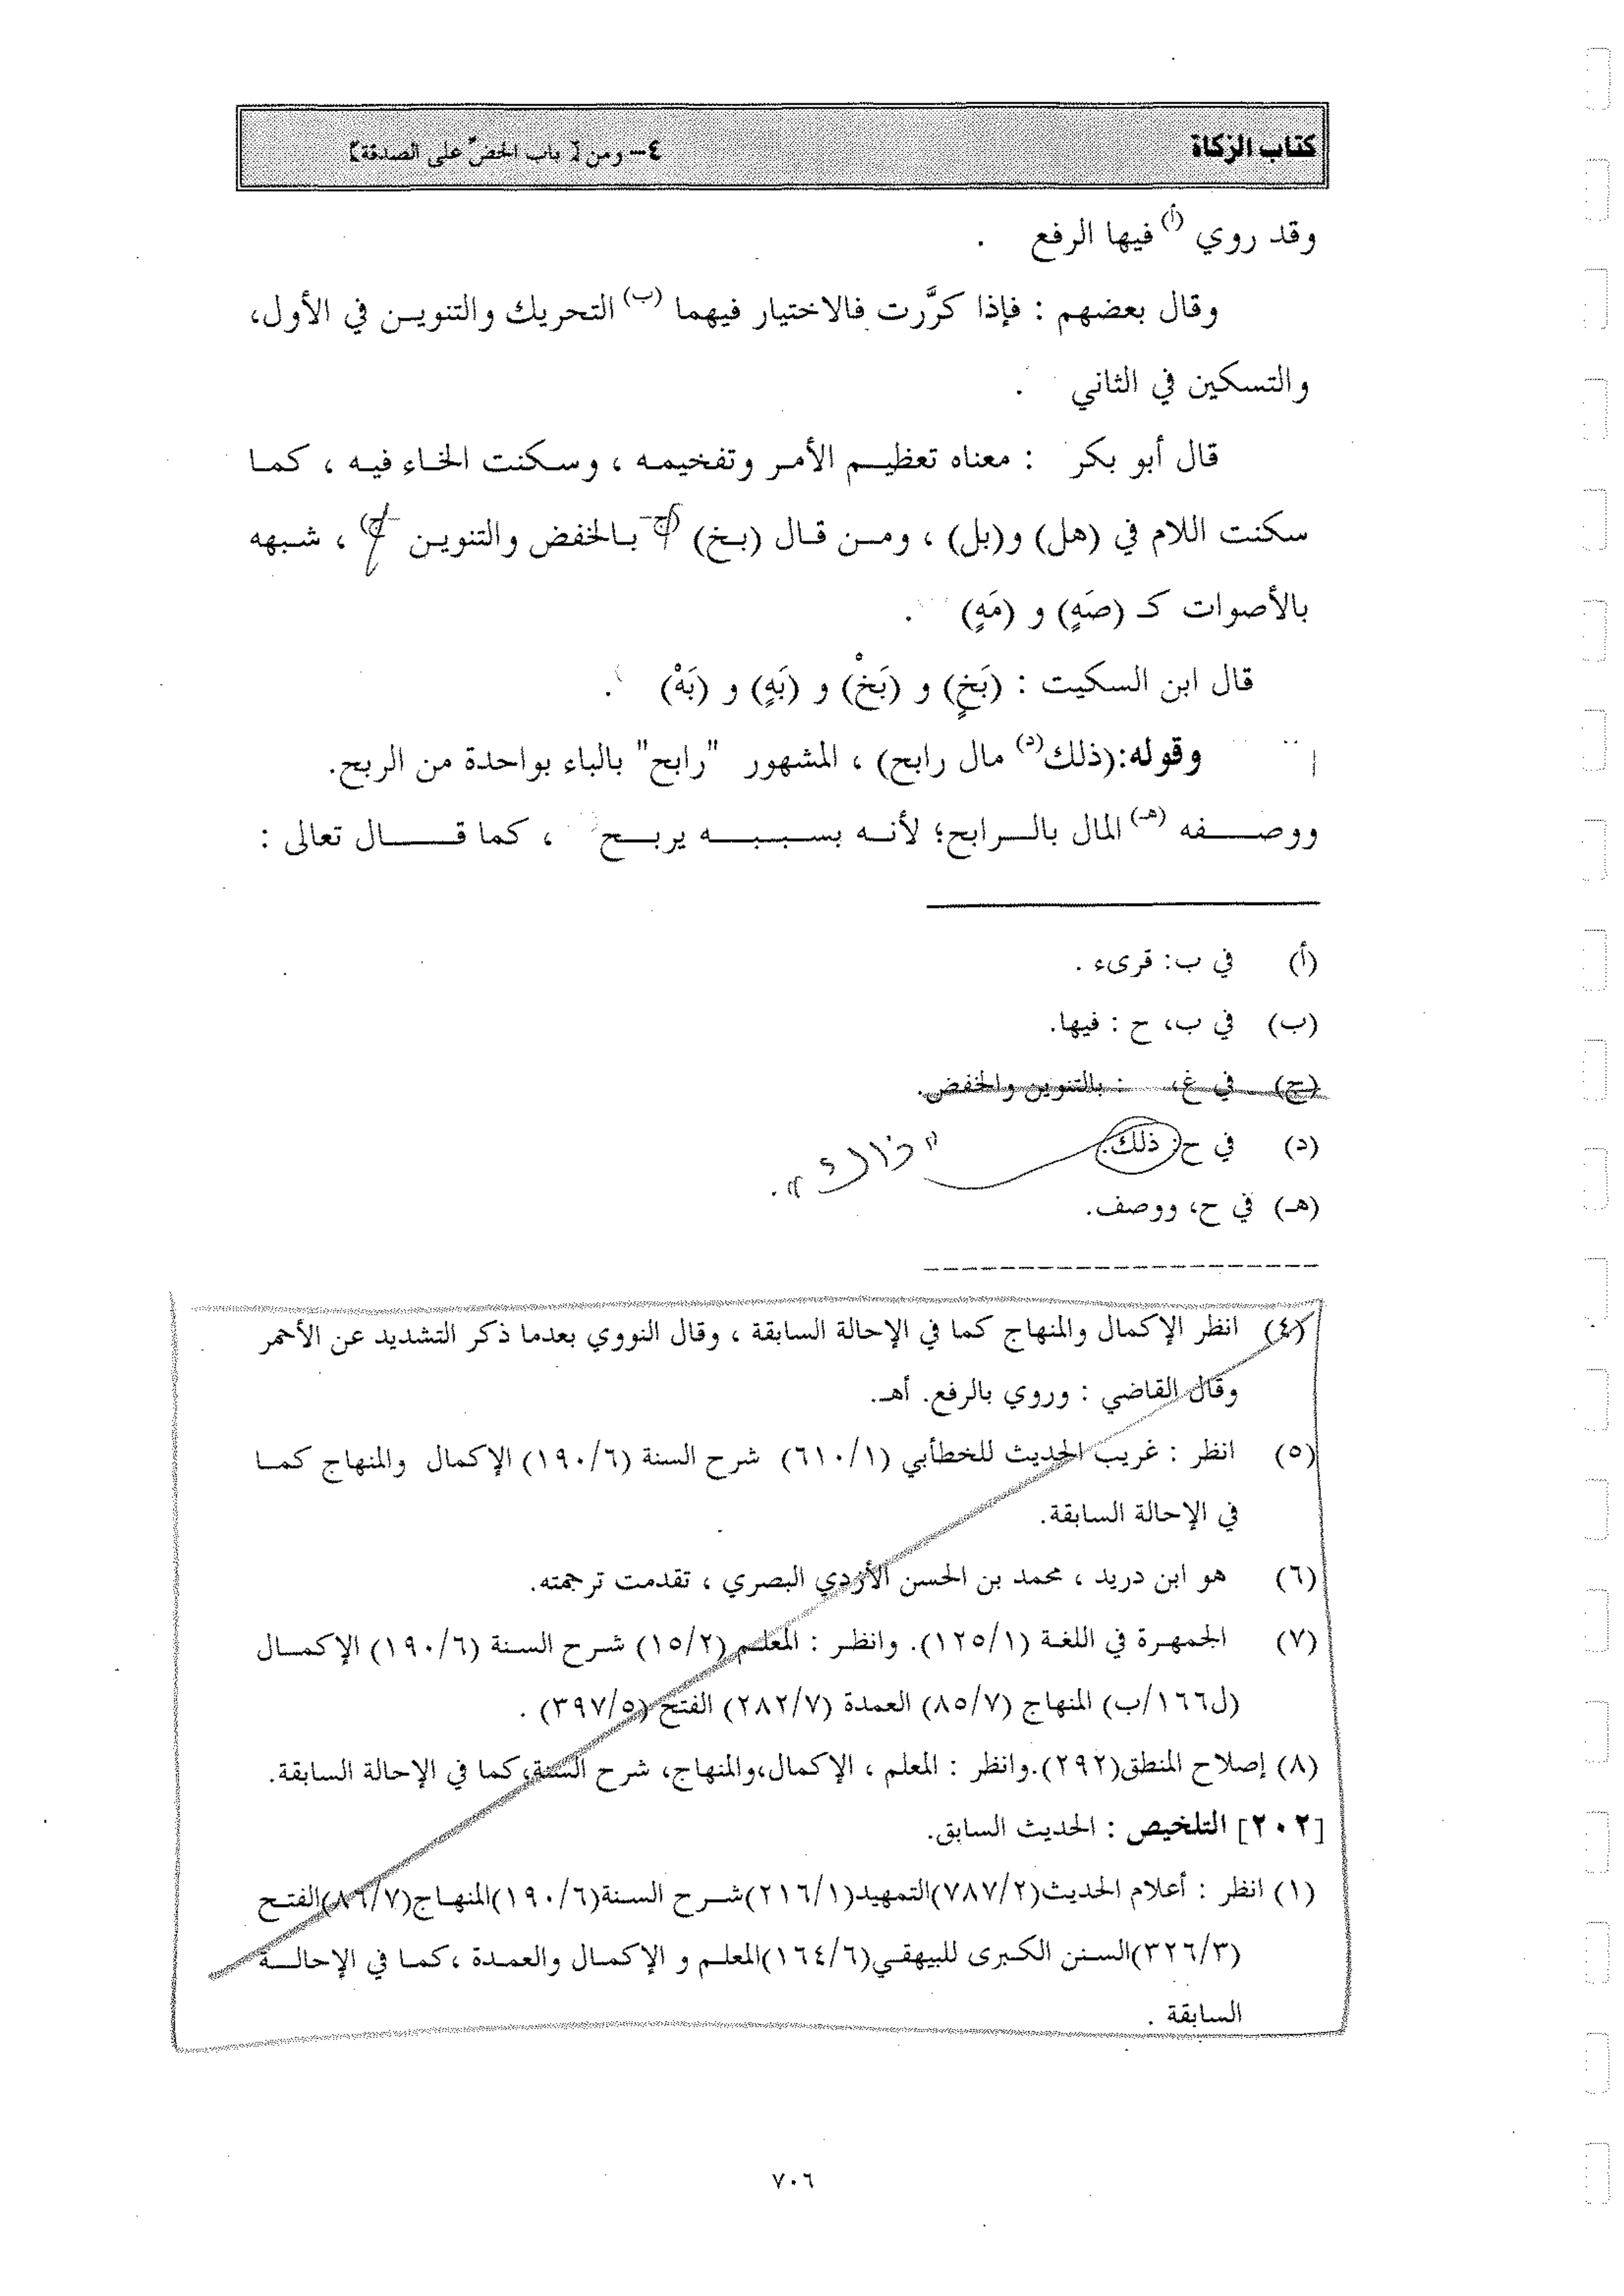 كتاب الزكاة
٤- ومن [ باب الحضّ على الصدقة]
وقد روي (أ) فيها الرفع .
وقال بعضهم : فإذا كرَّرت فالاختيار فيهما (ب) التحريك والتنويـن في الأول،
والتسكين في الثاني .
قال أبو بكر : معناه تعظيـم الأمـر وتفخيمـه ، وسـكنت الخـاء فيـه ، كمـا
سكنت اللام في (هل) و(بل) ، ومـن قـال (بـخ) (ج- بـالخفض والتنويـن -ج) ، شـبهه
بالأصوات كـ (صَهٍ) و (مَهٍ) .
قال ابن السكيت : (بَخٍ) و (بَخْ) و (بَهٍ) و (بَهْ) .
وقوله:(ذلك(د) مال رابح) ، المشهور "رابح" بالباء بواحدة من الربح.
ووصـــفه (هـ) المال بالـرابح؛ لأنـه بسـببـــه يربــح ، كما قـــال تعالى :
(أ) في ب: قرىء .
(ب) في ب، ح : فيها.
(ج) في غ، : بالتنوين والخفض.
(د) في ح: ذلك.
"ذاك".
(هـ) في ح، ووصف.
(٤) انظر الإكمال والمنهاج كما في الإحالة السابقة ، وقال النووي بعدما ذكر التشديد عن الأحمر
وقال القاضي : وروي بالرفع. أهـ.
(٥) انظر : غريب الحديث للخطأبي (٦١٠/١) شرح السنة (١٩٠/٦) الإكمال والمنهاج كمـا
في الإحالة السابقة.
(٦) هو ابن دريد ، محمد بن الحسن الأزدي البصري ، تقدمت ترجمته.
(٧) الجمهـرة في اللغـة (١٢٥/١). وانظـر : المعلـم (١٥/٢) شـرح السـنة (١٩٠/٦) الإكمـال
(ل١٦٦/ب) المنهاج (٨٥/٧) العمدة (٢٨٢/٧) الفتح (٣٩٧/٥) .
(٨) إصلاح المنطق(٢٩٢).وانظر : المعلم ، الإكمال،والمنهاج، شرح السنة،كما في الإحالة السابقة.
[٢٠٢] التلخيص : الحديث السابق.
(١) انظر : أعلام الحديث(٧٨٧/٢)التمهيد(٢١٦/١)شـرح السـنة(١٩٠/٦)المنهـاج(٨٦/٧)الفتـح
(٣٢٦/٣)السـنن الكـبرى للبيهقـي(١٦٤/٦)المعلـم و الإكمـال والعمـدة ،كمـا في الإحالـــة
السابقة .
٧٠٦